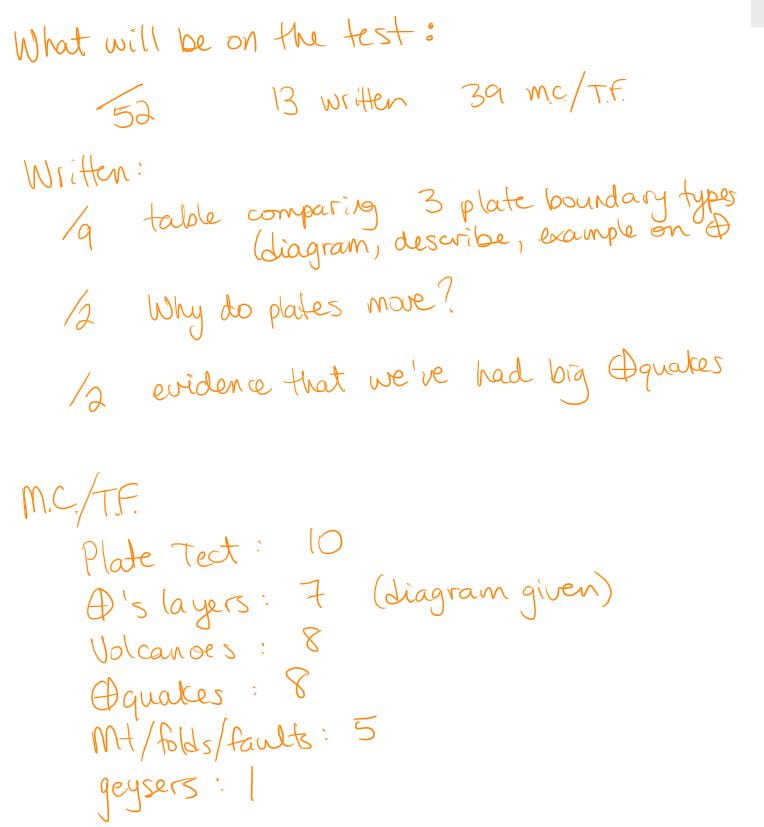 What will be on the test:
/52 13 written 39 m.c./T.F.
Written:
/9 table comparing 3 plate boundary types
(diagram, describe, example on ⊕
/2 Why do plates move?
/2 evidence that we've had big ⊕quakes
M.C./T.F.
Plate Tect: 10
⊕'s layers: 7 (diagram given)
Volcanoes: 8
⊕quakes: 8
Mt/folds/faults: 5
geysers: 1